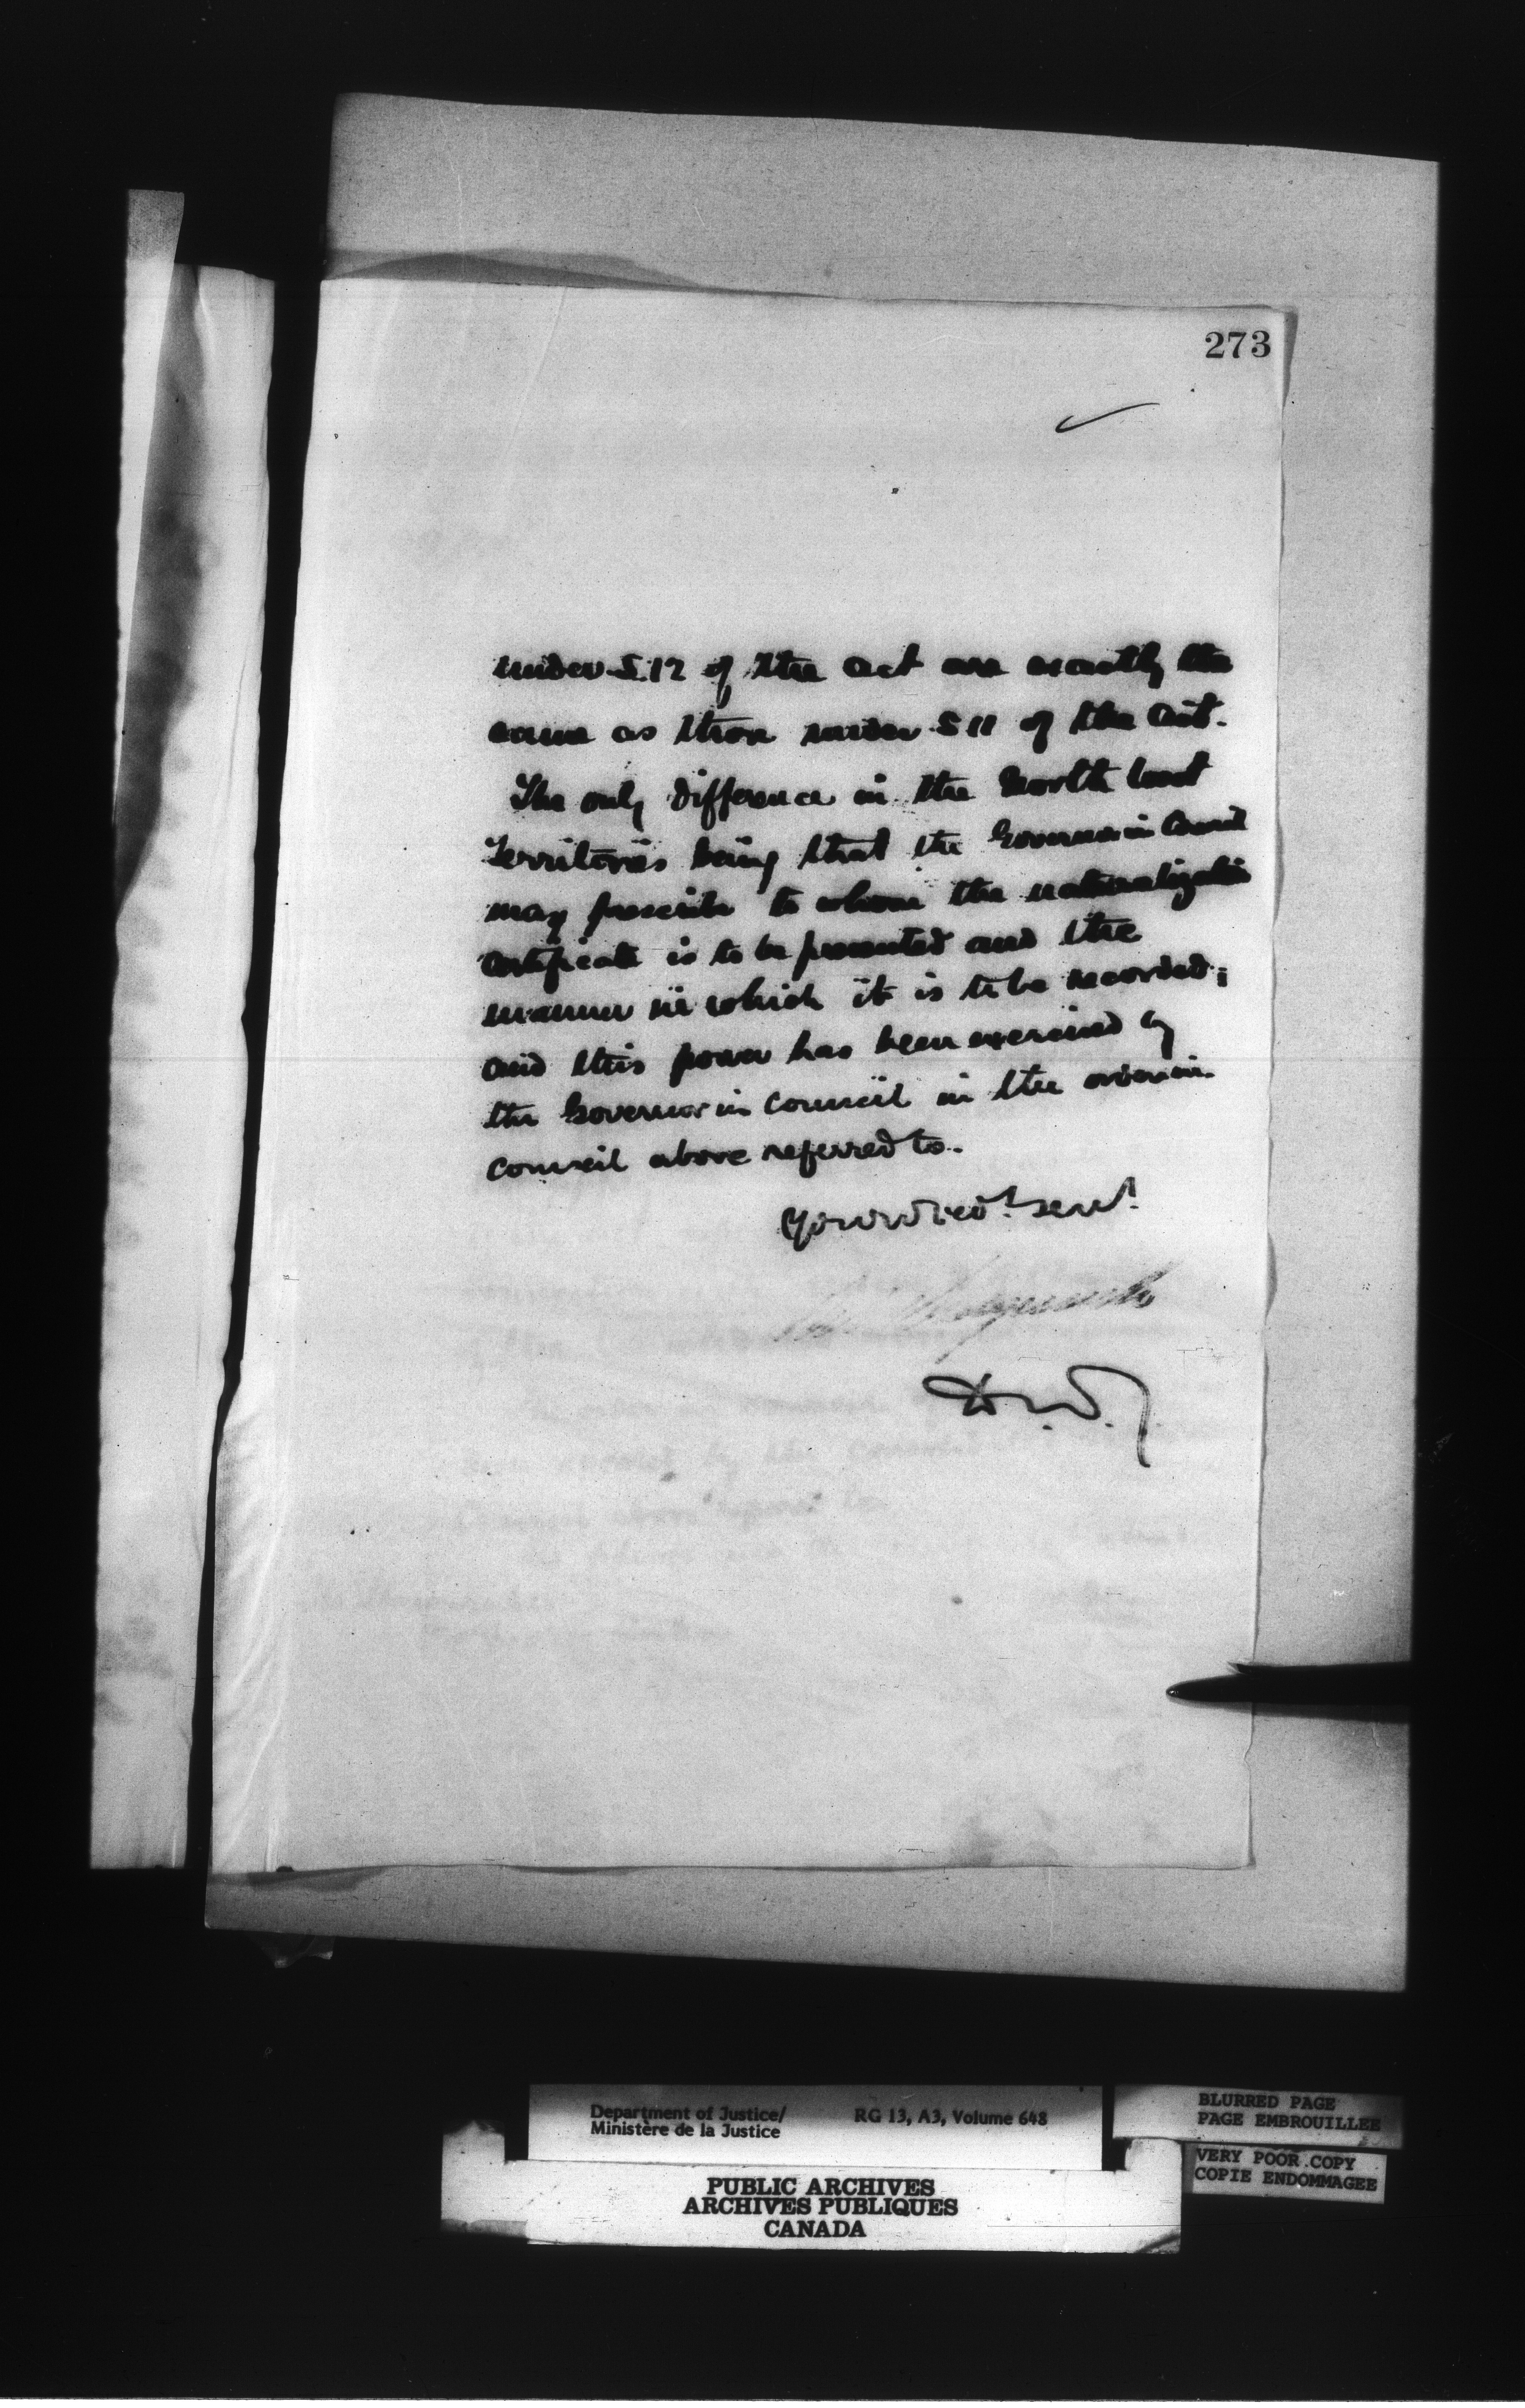 273
under S. 12 of the Act are exactly the
same as those under S 11 of the Act.
The only difference in the North West
Territories being that the Governor in Council
may prescribe to whom the naturalization
certificate is to be presented and the
manner in which it is to be recorded;
and this power has been exercised by
the Governor in Council in the order in
Council above referred to.
Your obedt. servt.
D.M.J.
Department of Justice/
Ministère de la Justice
RG 13, A3, Volume 648
BLURRED PAGE
PAGE EMBROUILLEE
VERY POOR COPY
COPIE ENDOMMAGEE
PUBLIC ARCHIVES
ARCHIVES PUBLIQUES
CANADA